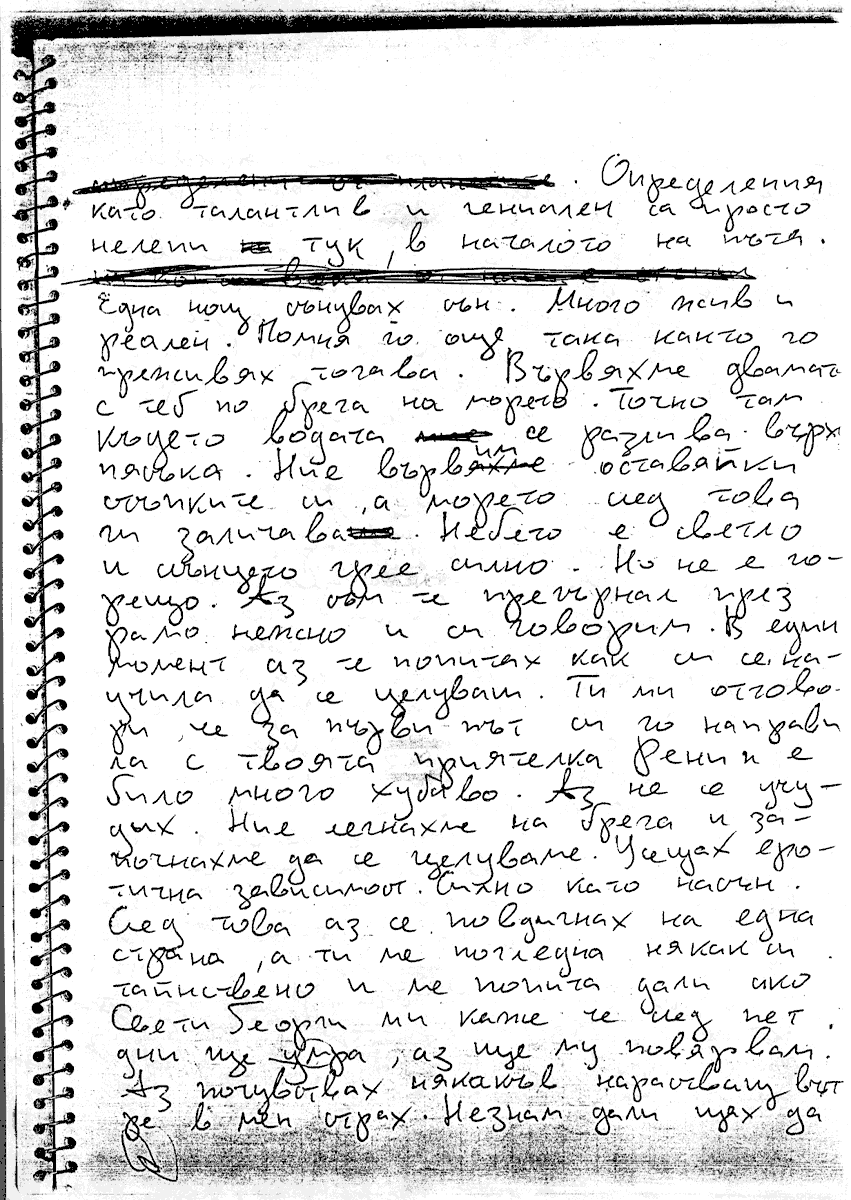 определени от . Определения
като талантлив и гениален са просто
нелепи тук, в началото на пътя.
Една нощ сънувах сън. Много жив и
реален. Помня го още така както го
преживях тогава. Вървяхме двамата
с теб по брега на морето. Точно там
където водата се разлива върх
пясъка. Ние вървим оставяйки
стъпките си, а морето след това
ги заличава. Небето е светло
и слънцето грее силно. Но не е го-
рещо. Аз съм те прегърнал през
рамо нежно и си говорим. В един
момент аз те попитах как си се на-
учила да се целуваш. Ти ми отгово-
ри, че за първи път си го направи
ла с твоята приятелка Рени и е
било много хубаво. Аз не се учу-
дих. Ние легнахме на брега и за-
почнахме да се целуваме. Усещах еро-
тична зависимост. Силно като насън.
След това аз се повдигнах на една
страна, а ти ме погледна някак си
тайнствено и ме попита дали ако
Свети Георги ми каже че след пет
дни ще умра, аз ще му повярвам.
Аз почувствах някакъв нарастващ вът
ре в мен страх. Незнам дали щях да
2